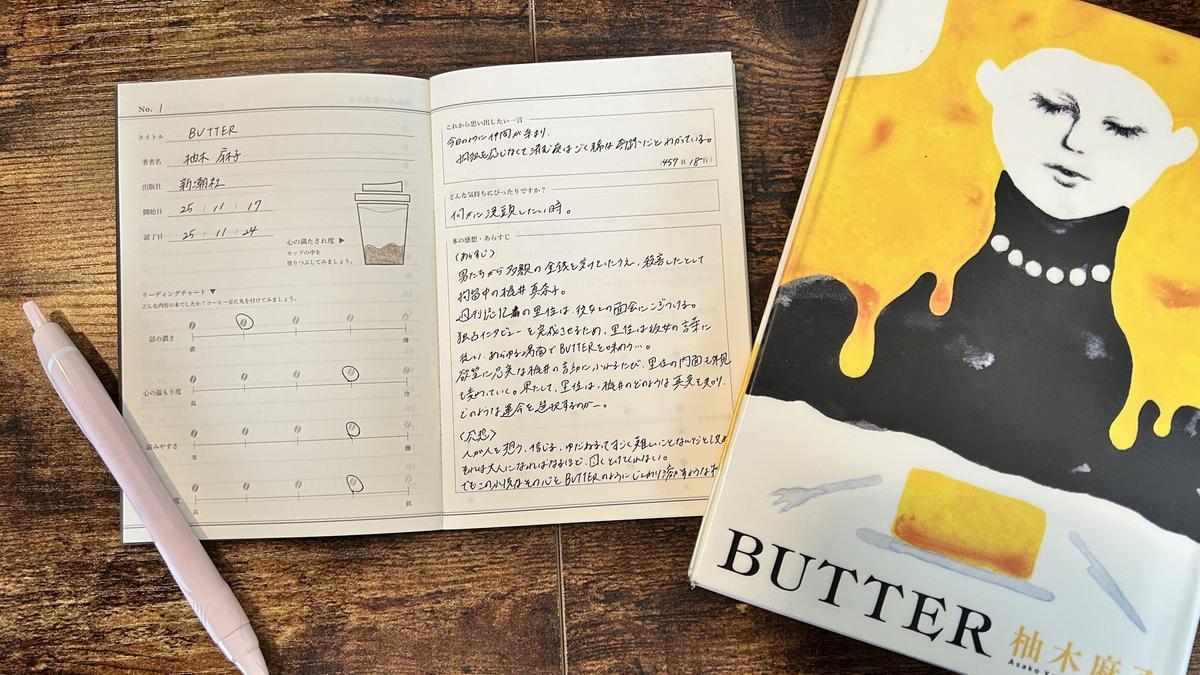 No. 1
タイトル BUTTER
著者名 柚木 麻子
出版社 新潮社
開始日 25 11 17
読了日 25 11 24
心の満たされ度 ▶
カップの中を
塗りつぶしてみましょう。
リーディングチャート ▼
どんな内容の本でしたか?コーヒー豆に丸を付けてみましょう。
話の濃さ
濃 薄
心の温もり度
温 冷
読みやすさ
楽 難
度
高 低
これから思い出したい一言
今日のように仲間が集まり、
孤独を感じなくて済む夜はごく稀な奇跡だとわかっている。
(457頁 18行)
どんな気持ちにぴったりですか?
何かに没頭したい時。
本の感想・あらすじ
〈あらすじ〉
男たちから多額の金銭を受けとったうえ、殺害したとして
拘留中の梶井真奈子。
週刊誌記者の里佳は、彼女との面会にこぎつける。
独占インタビューを完成させるため、里佳は彼女の言葉に
従い、あらゆる場面でBUTTERを味わう…。
欲望に忠実な梶井の言動にふれるたび、里佳の内面も外見
も変わっていく。果たして、里佳は、梶井のどのような真実を知り、
どのような運命を選択するのか―。
〈感想〉
人が人を想う、信じる、ゆだねるってすごく難しいことなんだと
それは大人になればなるほど、固くとけてくれない。
でもこの小説はその心をBUTTERのようにじんわり溶かすような
BUTTER
柚木麻子
Asako